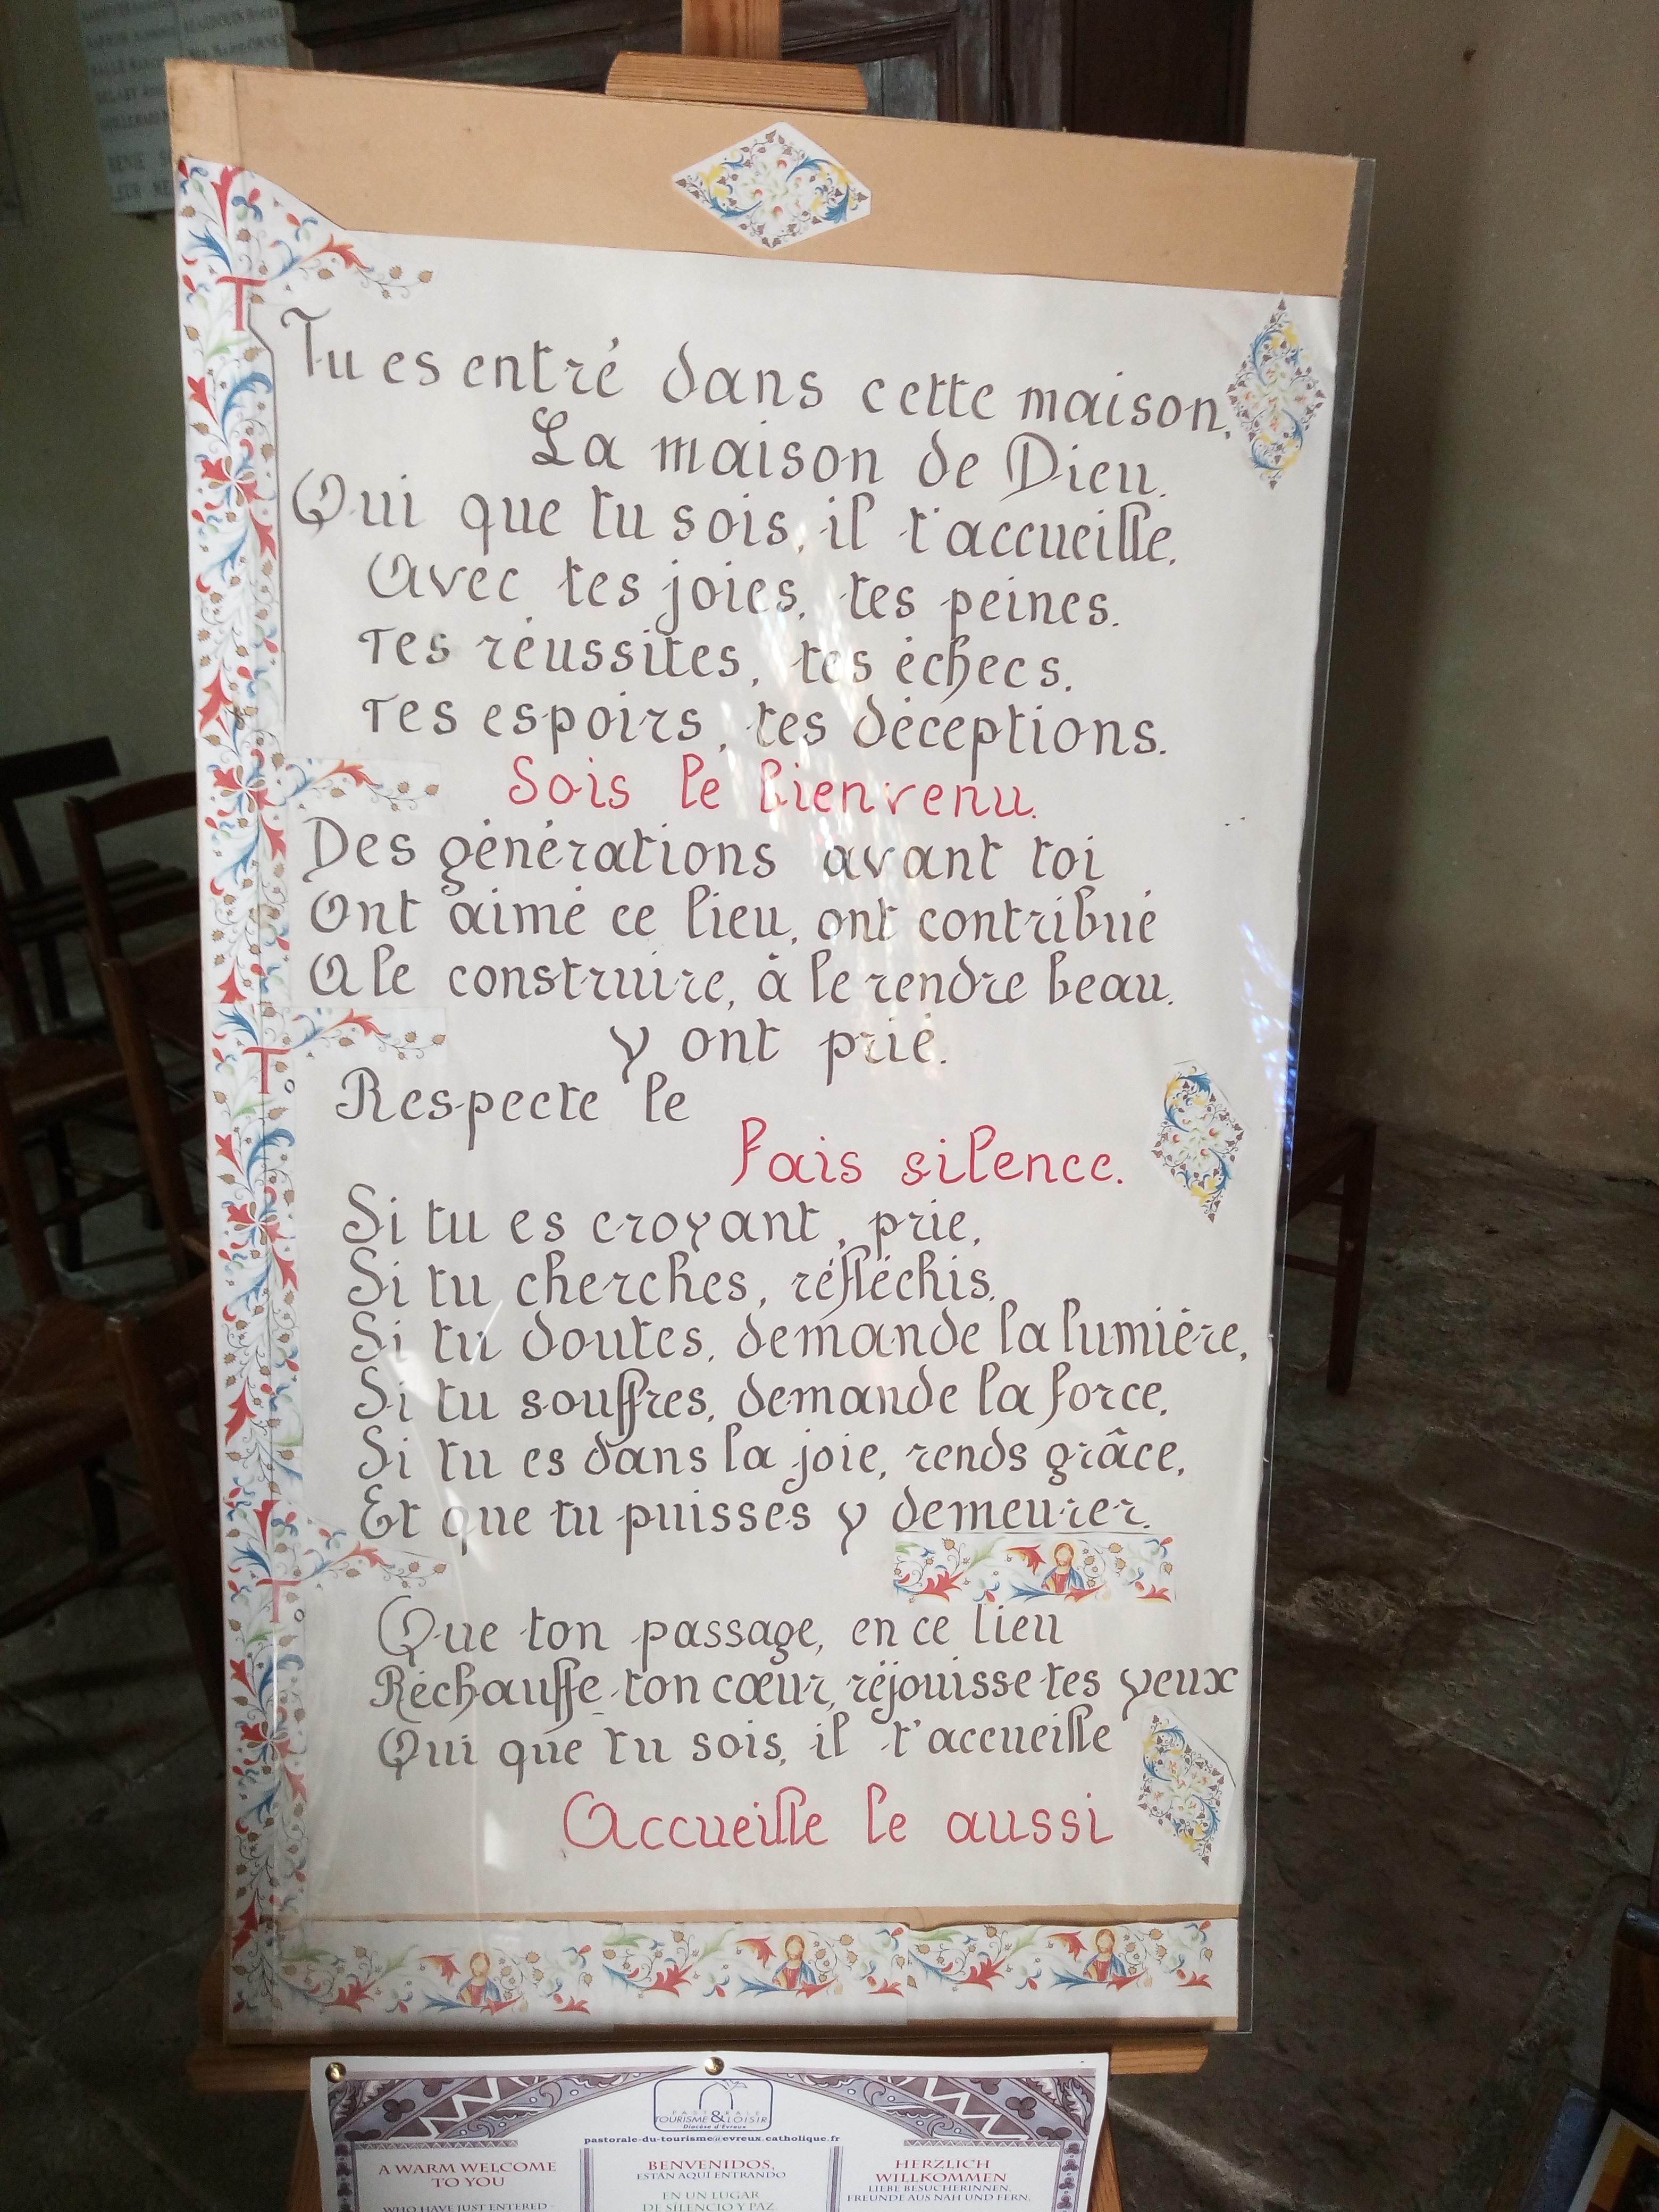 T
Tu es entré dans cette maison,
La maison de Dieu.
Qui que tu sois, il t'accueille.
Avec tes joies, tes peines.
Tes réussites, tes échecs.
Tes espoirs, tes déceptions.
Sois le bienvenu.
Des générations avant toi
Ont aimé ce lieu, ont contribué
A le construire, à le rendre beau.
y ont prié.
T
Respecte le
Fais silence.
Si tu es croyant, prie,
Si tu cherches, réfléchis,
Si tu doutes, demande la lumière,
Si tu souffres, demande la force,
Si tu es dans la joie, rends grâce,
Et que tu puisses y demeurer.
T
Que ton passage, en ce lieu
Réchauffe ton cœur, réjouisse tes yeux
Qui que tu sois, il t'accueille
Accueille le aussi
PASTORALE
TOURISME & LOISIR
Diocèse d'Evreux
pastorale-du-tourisme@evreux.catholique.fr
A WARM WELCOME
TO YOU
WHO HAVE JUST ENTERED -
BENVENIDOS,
ESTÁN AQUÍ ENTRANDO
EN UN LUGAR
DE SILENCIO Y PAZ.
HERZLICH
WILLKOMMEN
LIEBE BESUCHERINNEN,
FREUNDE AUS NAH UND FERN,